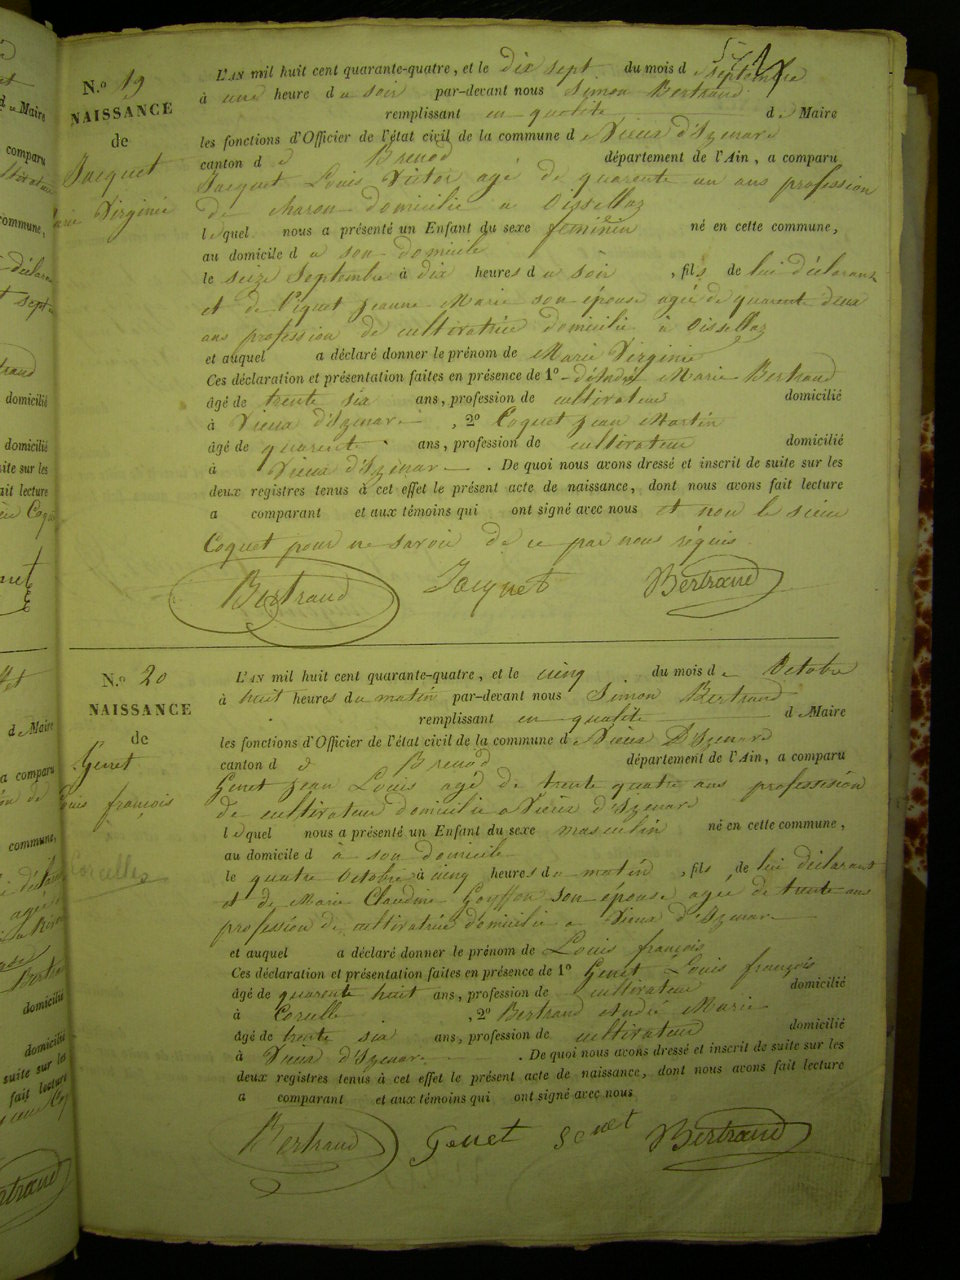 N.o 19
NAISSANCE
de
Jacquet
Marie Virginie
L'AN mil huit cent quarante-quatre, et le dix sept du mois de septembre
à une heure du soir par-devant nous Simon Bertrand
remplissant en qualité de Maire
les fonctions d'Officier de l'état civil de la commune de Vieux d'Izenave
canton d e Brenod département de l'Ain, a comparu
Jacquet Louis Victor agé de quarente un ans profession
de Maçon domicilié à Oissellaz
lequel nous a présenté un Enfant du sexe feminin né en cette commune,
au domicile d a son domicile
le seize Septembre à dix heures du soir, fils de lui déclarant
et de Piquet Jeanne Marie son épouse agée de quarente deux
ans profession de cultivatrice domicilié à Oissellaz
et auquel a déclaré donner le prénom de Marie Virginie
Ces déclaration et présentation faites en présence de 1º André Marie Bertrand
âgé de trente six ans, profession de cultivateur domicilié
à Vieux d'Izenave, 2º Coquet Jean Martin
âgé de quarente ans, profession de cultivateur domicilié
à Vieux d'Izenave. De quoi nous avons dressé et inscrit de suite sur les
deux registres tenus à cet effet le présent acte de naissance, dont nous avons fait lecture
a comparant et aux témoins qui ont signé avec nous et non le sieur
Coquet pour ne savoir de ce par nous réquis
Bertrand Jacquet Bertrand
N.o 20
NAISSANCE
de
Genet
Louis françois
Corcelles
L'AN mil huit cent quarante-quatre, et le cinq du mois de Octobre
à huit heures du matin par-devant nous Simon Bertrand
remplissant en qualité de Maire
les fonctions d'Officier de l'état civil de la commune de Vieux D'Izenave
canton d e Brenod département de l'Ain, a comparu
Genet Jean Louis agé de trente quatre ans professsion
de cultivateur domicilié a Vieux d'Izenave
lequel nous a présenté un Enfant du sexe masculin né en cette commune,
au domicile d à son domicile
le quatre Octobre à cinq heures du matin, fils de lui déclarant
et de Marie Claudine Goyffon son épouse agée de trente ans
profession de cultivatrice domicilié a Vieux d'Izenave
et auquel a déclaré donner le prénom de Louis françois
Ces déclaration et présentation faites en présence de 1º Genet Louis françois
âgé de quarente huit ans, profession de cultivateur domicilié
à Corcelle, 2º Bertrand André Marie
âgé de trente six ans, profession de cultivateur domicilié
à Vieux d'Izenave. De quoi nous avons dressé et inscrit de suite sur les
deux registres tenus à cet effet le présent acte de naissance, dont nous avons fait lecture
a comparant et aux témoins qui ont signé avec nous
Bertrand Genet Genet Bertrand